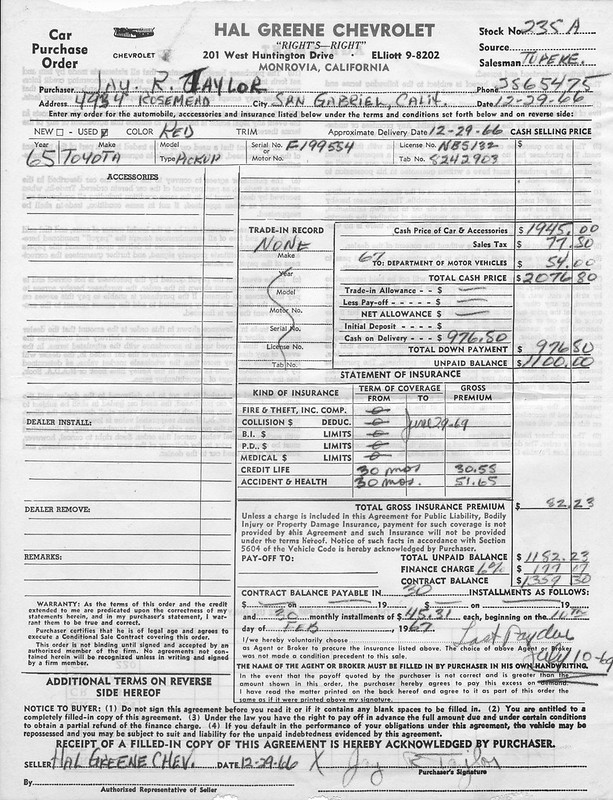 Car
Purchase
Order
CHEVROLET
HAL GREENE CHEVROLET
"RIGHT'S—RIGHT"
201 West Huntington Drive · ELliott 9-8202
MONROVIA, CALIFORNIA
Stock No. 235A
Source
Salesman TUPEKE.
Purchaser JAY. R. TAYLOR Phone 2865475
Address 4934 ROSEMEAD City SAN GABRIEL, CALIF. Date 12-29-66
Enter my order for the automobile, accessories and insurance listed below under the terms and conditions set forth below and on reverse side:
NEW - USED COLOR RED TRIM Approximate Delivery Date 12-29-66 CASH SELLING PRICE
Year 65 Make TOYOTA Model Type PICKUP Serial No. or Motor No. F199554 License No. NB5132 Tab No. 8242903 $
ACCESSORIES
TRADE-IN RECORD
NONE
Make
Year
Model
Motor No.
Serial No.
License No.
Tab No.
Cash Price of Car & Accessories $ 1945.00
Sales Tax $ 77.80
67 TO: DEPARTMENT OF MOTOR VEHICLES $ 54.00
TOTAL CASH PRICE $ 2076 80
Trade-in Allowance - - $ —
Less Pay-off - - - - - $ —
NET ALLOWANCE $ —
Initial Deposit - - - - $ —
Cash on Delivery - - - $ 976.80
TOTAL DOWN PAYMENT $ 976 80
UNPAID BALANCE $ 1100.00
STATEMENT OF INSURANCE
KIND OF INSURANCE TERM OF COVERAGE FROM TO GROSS PREMIUM
FIRE & THEFT, INC. COMP.
COLLISION $ DEDUC. June 29-69
B.I. $ LIMITS
P.D. $ LIMITS
MEDICAL $ LIMITS
CREDIT LIFE 30 mos 30.58
ACCIDENT & HEALTH 30 mos. 51.65
DEALER INSTALL:
DEALER REMOVE:
REMARKS:
TOTAL GROSS INSURANCE PREMIUM $ 82.23
Unless a charge is included in this Agreement for Public Liability, Bodily
Injury or Property Damage Insurance, payment for such coverage is not
provided by this Agreement and such Insurance will not be provided
under the terms hereof. Notice of such facts in accordance with Section
5604 of the Vehicle Code is hereby acknowledged by Purchaser.
PAY-OFF TO: TOTAL UNPAID BALANCE $ 1182.23
FINANCE CHARGE 6% $ 177 07
CONTRACT BALANCE $ 1359 30
CONTRACT BALANCE PAYABLE IN 30 INSTALLMENTS AS FOLLOWS:
$ on 19 $ on 19
and 30 monthly installments of $ 45.31 each, beginning on the 10TH
day of FEB, 1967
Last Payday
July 10-69
I/we hereby voluntarily choose
as Agent or Broker to procure the insurance listed above. The choice of above Agent or Broker
was not made a condition precedent to this sale.
THE NAME OF THE AGENT OR BROKER MUST BE FILLED IN BY PURCHASER IN HIS OWN HANDWRITING.
In the event that the payoff quoted by the purchaser is not correct and is greater than the
amount shown in this order, the purchaser hereby agrees to pay this excess on demand.
I have read the matter printed on the back hereof and agree to it as part of this order the
same as if it were printed above my signature.
WARRANTY: As the terms of this order and the credit
extended to me are predicated upon the correctness of my
statements herein, and in my purchaser's statement, I war-
rant them to be true and correct.
Purchaser certifies that he is of legal age and agrees to
execute a Conditional Sale Contract covering this order.
This order is not binding until signed and accepted by an
authorized member of the firm. No agreements not con-
tained herein will be recognized unless in writing and signed
by a firm member.
ADDITIONAL TERMS ON REVERSE
SIDE HEREOF
NOTICE TO BUYER: (1) Do not sign this agreement before you read it or if it contains any blank spaces to be filled in. (2) You are entitled to a
completely filled-in copy of this agreement. (3) Under the law you have the right to pay off in advance the full amount due and under certain conditions
to obtain a partial refund of the finance charge. (4) If you default in the performance of your obligations under this agreement, the vehicle may be
repossessed and you may be subject to suit and liability for the unpaid indebtedness evidenced by this agreement.
RECEIPT OF A FILLED-IN COPY OF THIS AGREEMENT IS HEREBY ACKNOWLEDGED BY PURCHASER.
SELLER HAL GREENE CHEV. DATE 12-29-66 X Jay R Taylor
Purchaser's Signature
By
Authorized Representative of Seller